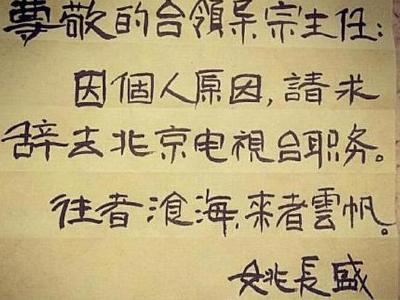 尊敬的台領导吴宗主任:
因個人原因,請求
辞去北京电視台职务。
往者滄海,來者雲帆。
姚長盛